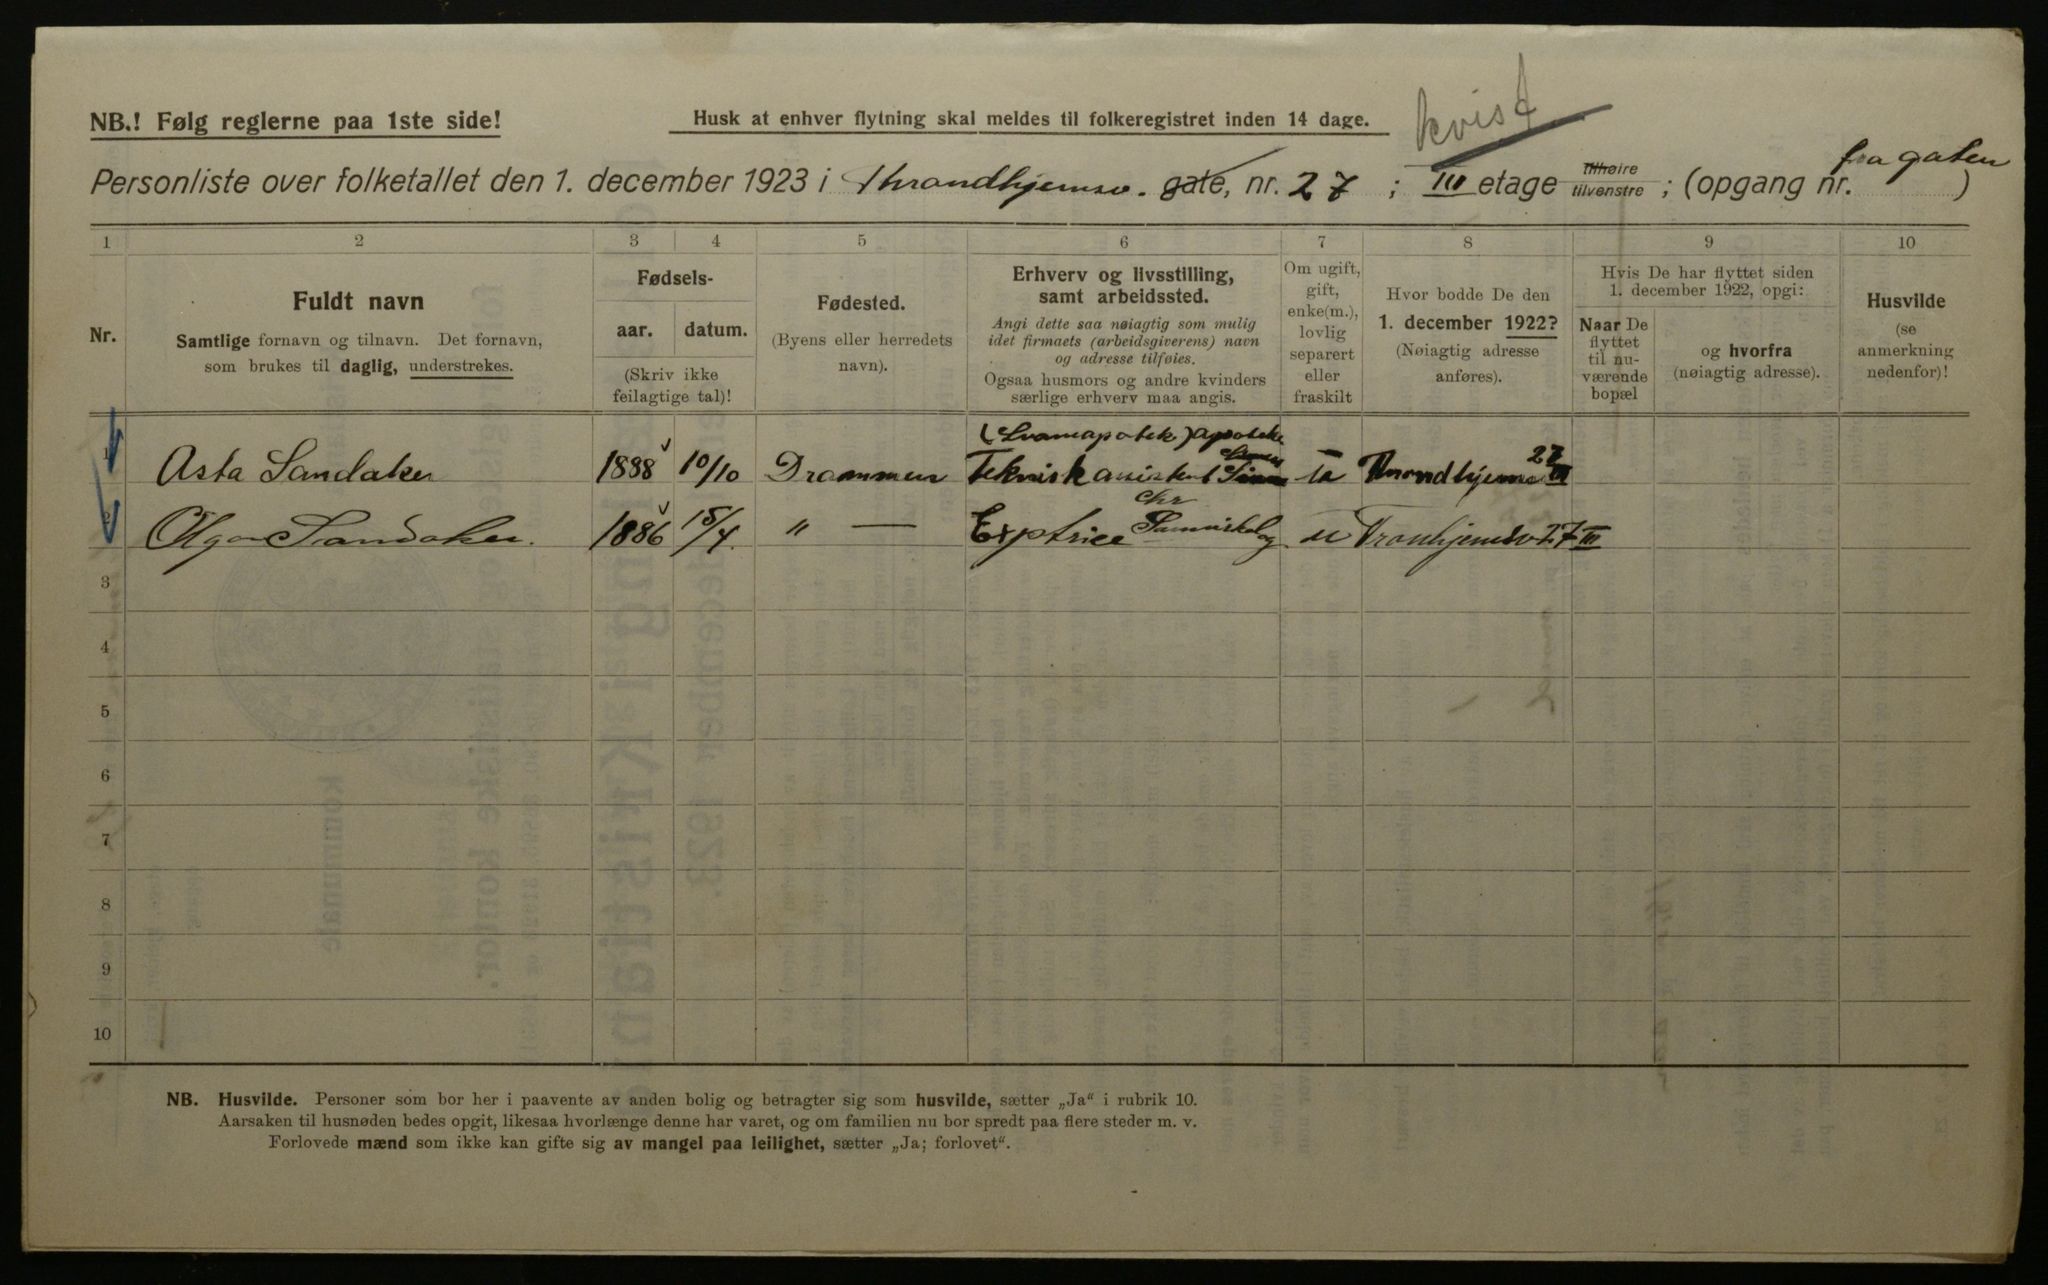 kvist
NB.! Følg reglerne paa 1ste side!
Husk at enhver flytning skal meldes til folkeregistret inden 14 dage.
fra gaten
Personliste over folketallet den 1. december 1923 i Throndhjemsv. gate, nr. 27 ; III etage tilhøire tilvenstre ; (opgang nr. )
1 2 3 4 5 6 7 8 9 10
Nr.
Fuldt navn
Samtlige fornavn og tilnavn. Det fornavn,
som brukes til daglig, understrekes.
Fødsels-
aar. datum.
(Skriv ikke
feilagtige tal)!
Fødested.
(Byens eller herredets
navn).
Erhverv og livsstilling,
samt arbeidssted.
Angi dette saa nøiagtig som mulig
idet firmaets (arbeidsgiverens) navn
og adresse tilføies.
Ogsaa husmors og andre kvinders
særlige erhverv maa angis.
Om ugift,
gift,
enke(m.),
lovlig
separert
eller
fraskilt
Hvor bodde De den
1. december 1922?
(Nøiagtig adresse
anføres).
Hvis De har flyttet siden
1. december 1922, opgi:
Naar De
flyttet
til nu-
værende
bopæl
og hvorfra
(nøiagtig adresse).
Husvilde
(se
anmerkning
nedenfor)!
(Svaneapotek.) apoteke
1 Asta Sandaker 1888 10/10 Drammen Teknisk assistent Throndhjemsv 27 III
2 Olga Sandaker. 1886 15/4. " — Exptrice Chr u Tronhjemsv 27 III
3
4
5
6
7
8
9
10
NB. Husvilde. Personer som bor her i paavente av anden bolig og betragter sig som husvilde, sætter „Ja“ i rubrik 10.
Aarsaken til husnøden bedes opgit, likesaa hvorlænge denne har varet, og om familien nu bor spredt paa flere steder m. v.
Forlovede mænd som ikke kan gifte sig av mangel paa leilighet, sætter „Ja; forlovet“.